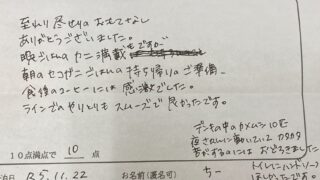 至れり尽せりのおもてなし
ありがとうございました。
晩ごはんのカニ満載もですが
朝のセコガニごはんの持ち帰りのご準備
食後のコーヒーには感激でした。
ラインでのやりとりもスムーズで良かったです。
デッキの中のカメムシ10匹
夜さんしんに動いていて カタカタ
音がするのにはおどろきました
10点満点で 10 点
トイレにハンドソープ
ほしかったです。
R5.11.22
お名前(匿名可)